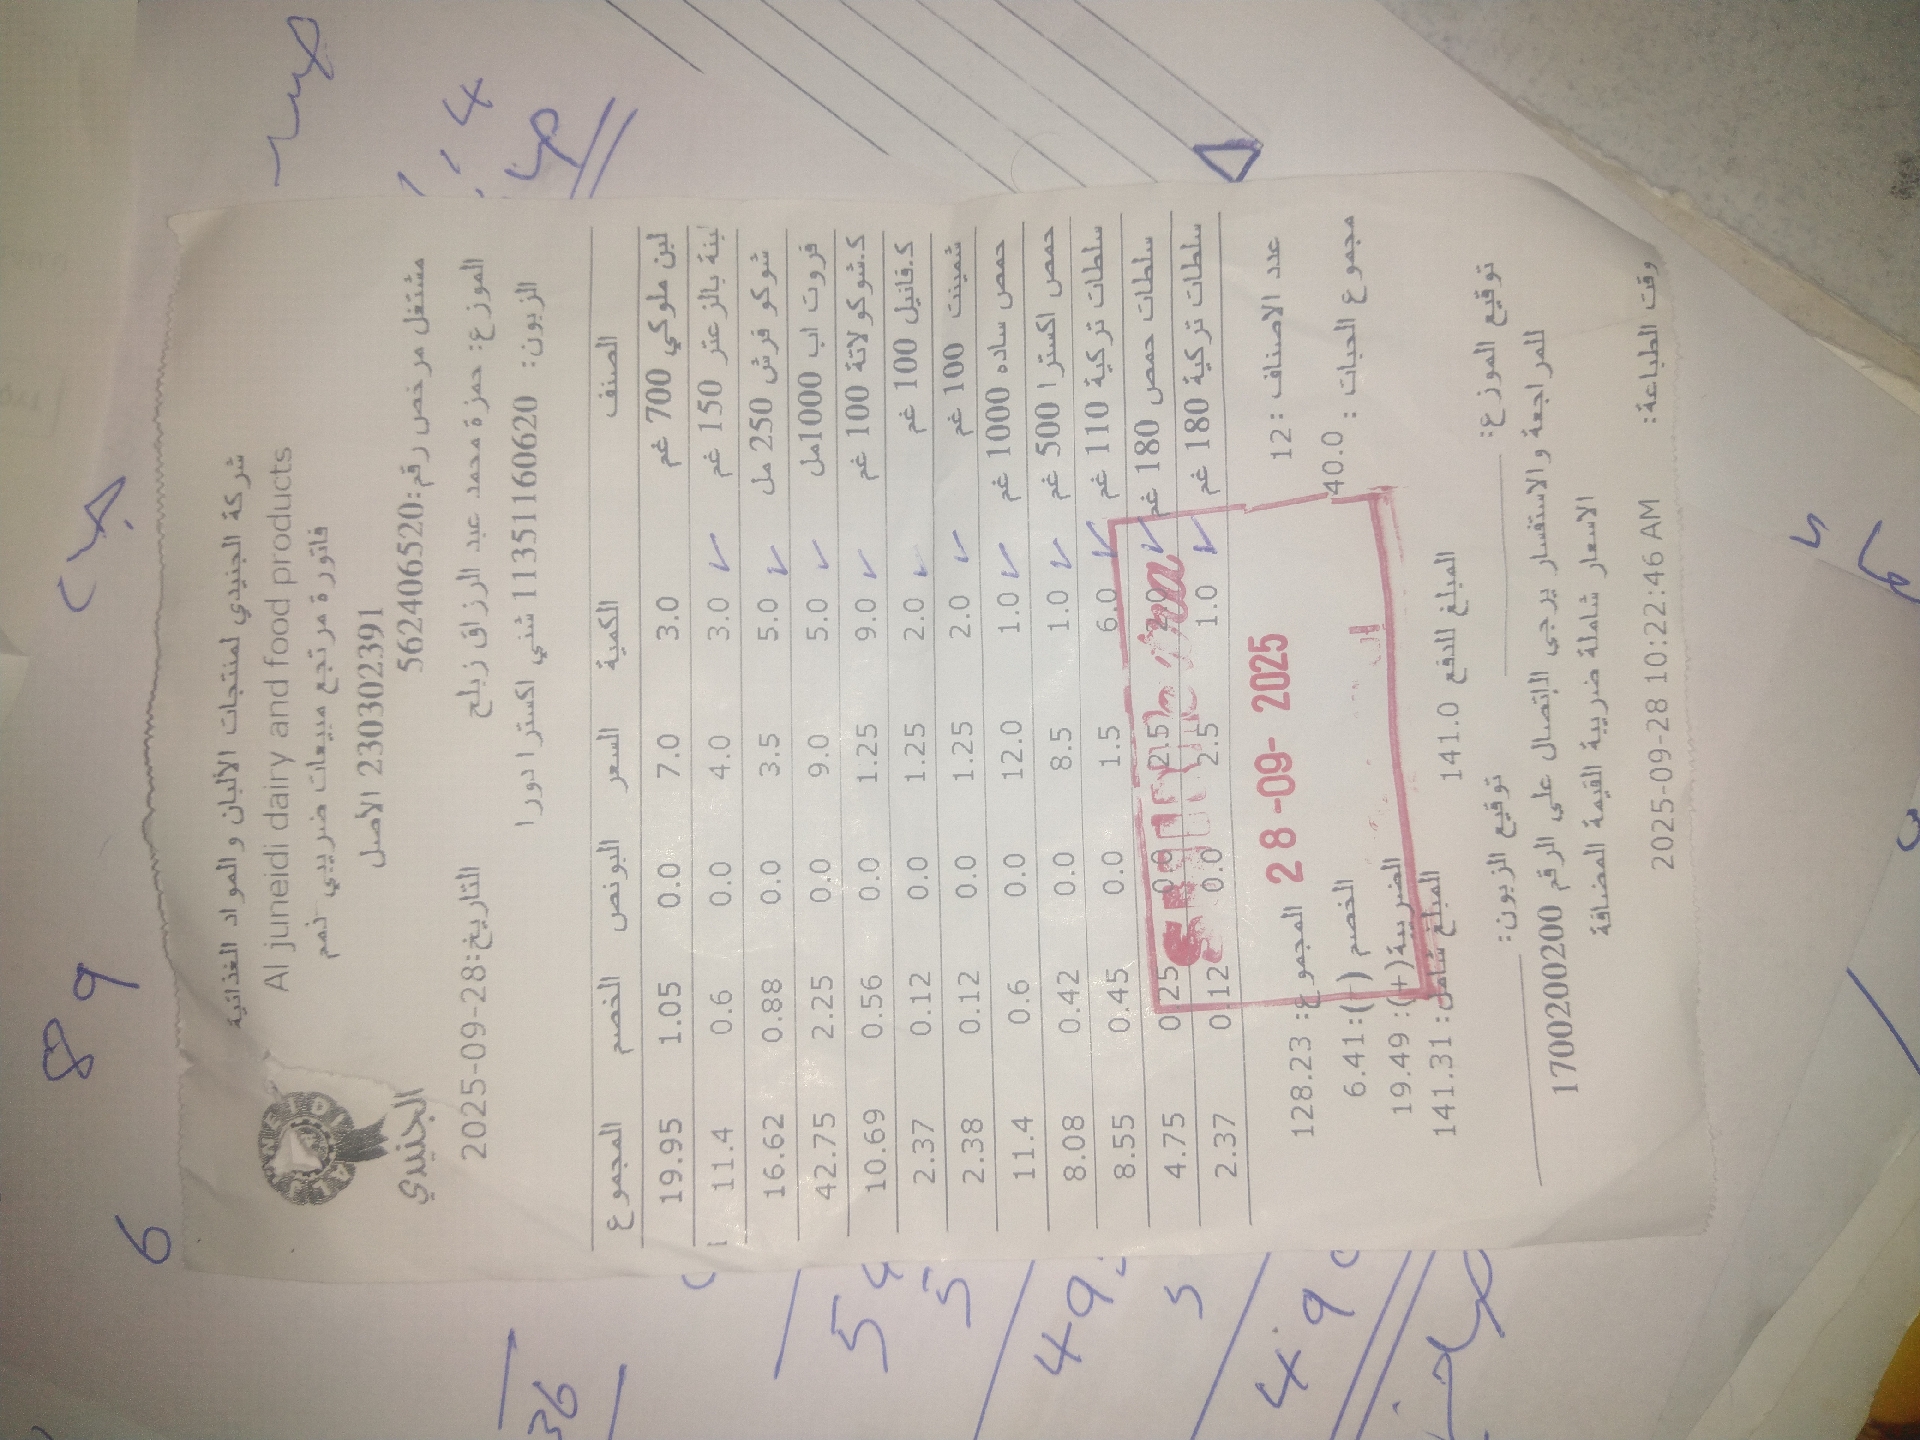 شركة الجنيدي لمنتجات الألبان والمواد الغذائية
Al juneidi dairy and food products
فاتورة مرتجع مبيعات ضريبي نهم
230302391 الأصل
مشتغل مرخص رقم:562406520
الجنيدي
الموزع: حمزة محمد عبد الرزاق زبلح
التاريخ:28-09-2025
الزبون: 11351160620 شني اكسترا دورا
الصنف الكمية السعر البونص الخصم المجموع
لبن ملوكي 700 غم 3.0 7.0 0.0 1.05 19.95
لبنة بالزعتر 150 غم 3.0 4.0 0.0 0.6 11.4
شوكو فرش 250 مل 5.0 3.5 0.0 0.88 16.62
فروت اب 1000مل 5.0 9.0 0.0 2.25 42.75
ك.شوكولاتة 100 غم 9.0 1.25 0.0 0.56 10.69
ك.فانيل 100 غم 2.0 1.25 0.0 0.12 2.37
شمينت 100 غم 2.0 1.25 0.0 0.12 2.38
حمص ساده 1000 غم 1.0 12.0 0.0 0.6 11.4
حمص اكسترا 500 غم 1.0 8.5 0.0 0.42 8.08
سلطات تركية 110 غم 6.0 1.5 0.0 0.45 8.55
سلطات حمص 180 غم 2.0 2.5 0.0 0.25 4.75
سلطات تركية 180 غم 1.0 2.5 0.0 0.12 2.37
عدد الاصناف : 12
المجموع: 128.23
28-09-2025
مجموع الحبات : 40.0
الخصم (-): 6.41
الضريبة(+): 19.49
المبلغ للدفع 141.0
المبلغ شامل: 141.31
توقيع الموزع:
توقيع الزبون:
للمراجعة والاستفسار يرجى الإتصال على الرقم 1700200200
الاسعار شاملة ضريبة القيمة المضافة
وقت الطباعة: 2025-09-28 10:22:46 AM
89
6
36
54
5
49
5
4.9